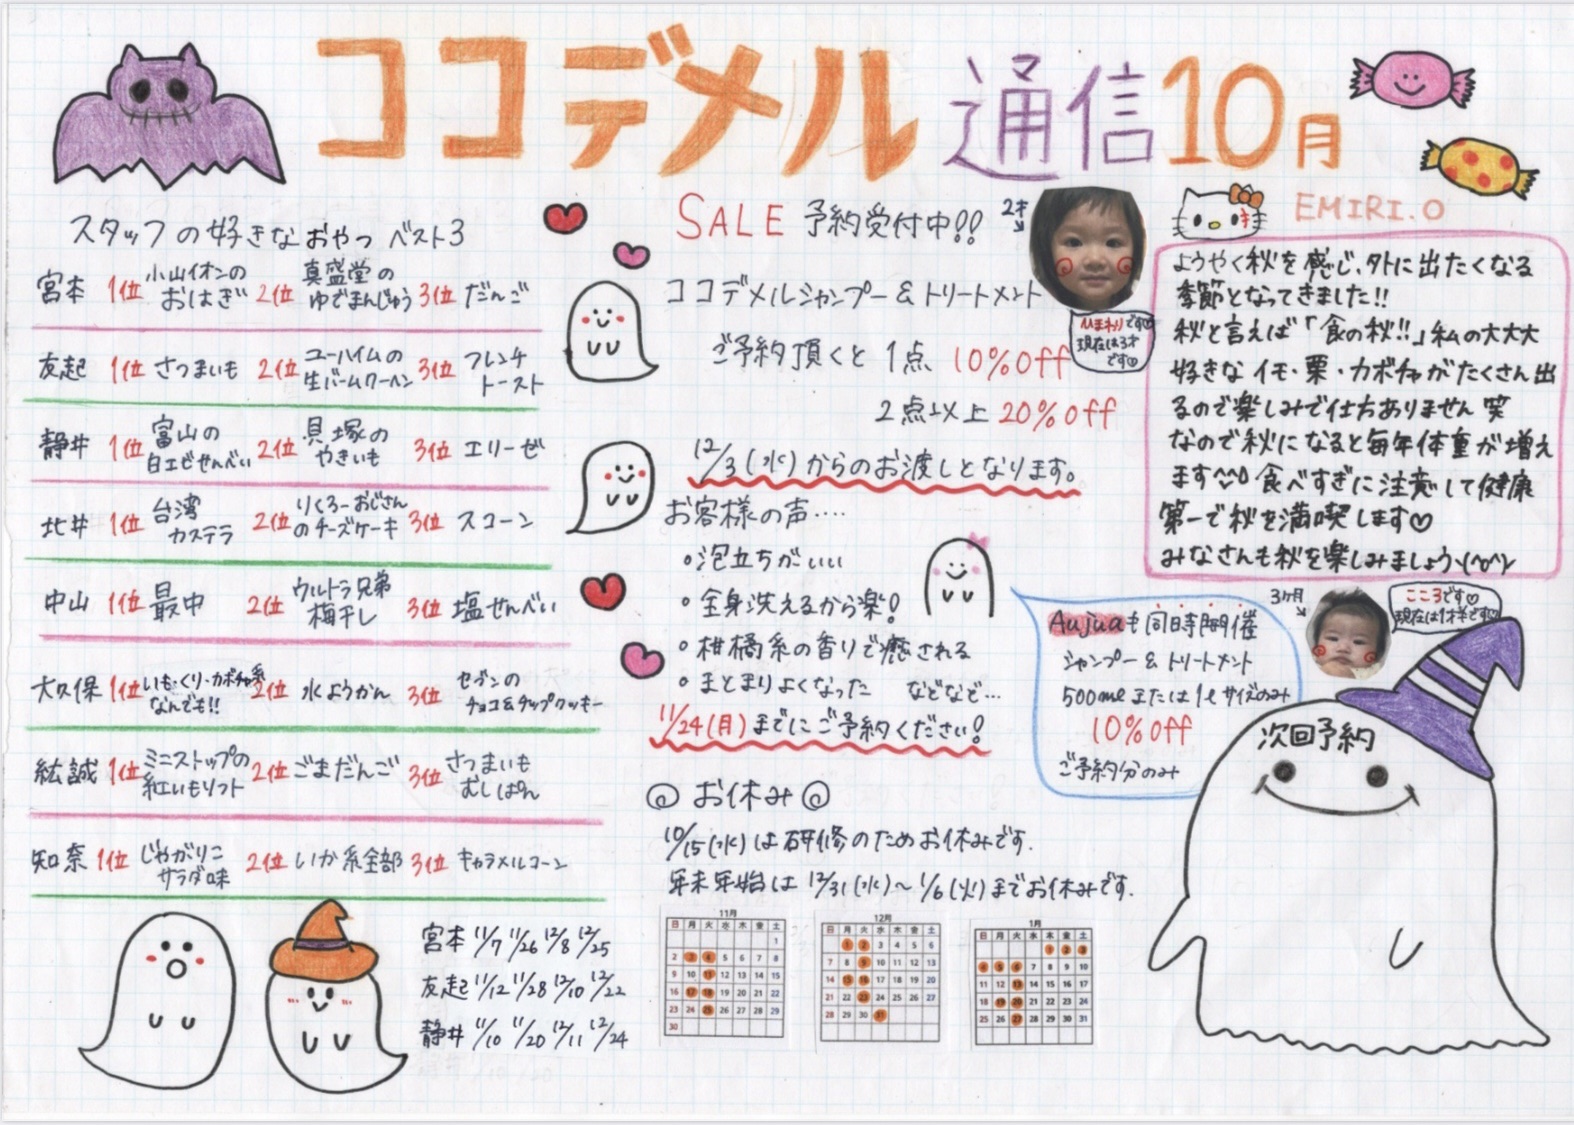 ココデメル通信10月
スタッフの好きなおやつ ベスト3
宮本 1位 小山イオンのおはぎ 2位 真盛堂のゆでまんじゅう 3位 だんご
友起 1位 さつまいも 2位 ユーハイムの生バームクーヘン 3位 フレンチトースト
静井 1位 富山の白エビせんべい 2位 貝塚のやきいも 3位 エリーゼ
北井 1位 台湾カステラ 2位 りくろーおじさんのチーズケーキ 3位 スコーン
中山 1位 最中 2位 ウルトラ兄弟梅干し 3位 塩せんべい
大久保 1位 いも・くり・カボチャ系なんでも!! 2位 水ようかん 3位 セブンのチョコ&チップクッキー
紘誠 1位 ミニストップの紅いもソフト 2位 ごまだんご 3位 さつまいもむしぱん
知奈 1位 じゃがりこサラダ味 2位 いか系全部 3位 キャラメルコーン
宮本 11/7 11/26 12/8 12/25
友起 11/12 11/28 12/10 12/22
静井 11/10 11/20 12/11 12/24
SALE 予約受付中!!
ココデメルシャンプー&トリートメント
ご予約頂くと 1点 10%off
2点以上 20%off
12/3(水)からのお渡しとなります。
お客様の声‥‥
・泡立ちがいい
・全身洗えるから楽!
・柑橘系の香りで癒される
・まとまりよくなった などなど…
11/24(月)までにご予約ください!
お休み
10/15(水)は研修のためお休みです.
年末年始は 12/31(水)〜1/6(火)までお休みです.
11月
日 月 火 水 木 金 土
1
2 3 4 5 6 7 8
9 10 11 12 13 14 15
16 17 18 19 20 21 22
23 24 25 26 27 28 29
30
12月
日 月 火 水 木 金 土
1 2 3 4 5 6
7 8 9 10 11 12 13
14 15 16 17 18 19 20
21 22 23 24 25 26 27
28 29 30 31
1月
日 月 火 水 木 金 土
1 2 3
4 5 6 7 8 9 10
11 12 13 14 15 16 17
18 19 20 21 22 23 24
25 26 27 28 29 30 31
2才
ひまわりです♡
現在は3才
です♡
EMIRI.O
ようやく秋を感じ、外に出たくなる
季節となってきました!!
秋と言えば「食の秋!!」私の大大大
好きなイモ・栗・カボチャがたくさん出
るので楽しみで仕方ありません 笑
なので秋になると毎年体重が増え
ます^^; 食べすぎに注意して健康
第一で秋を満喫します♡
みなさんも秋を楽しみましょう\(^o^)/
Aujuaも同時開催
シャンプー&トリートメント
500mlまたは1ℓサイズのみ
10%off
ご予約分のみ
3ヶ月
こころです♡
現在は1才半です♡
次回予約